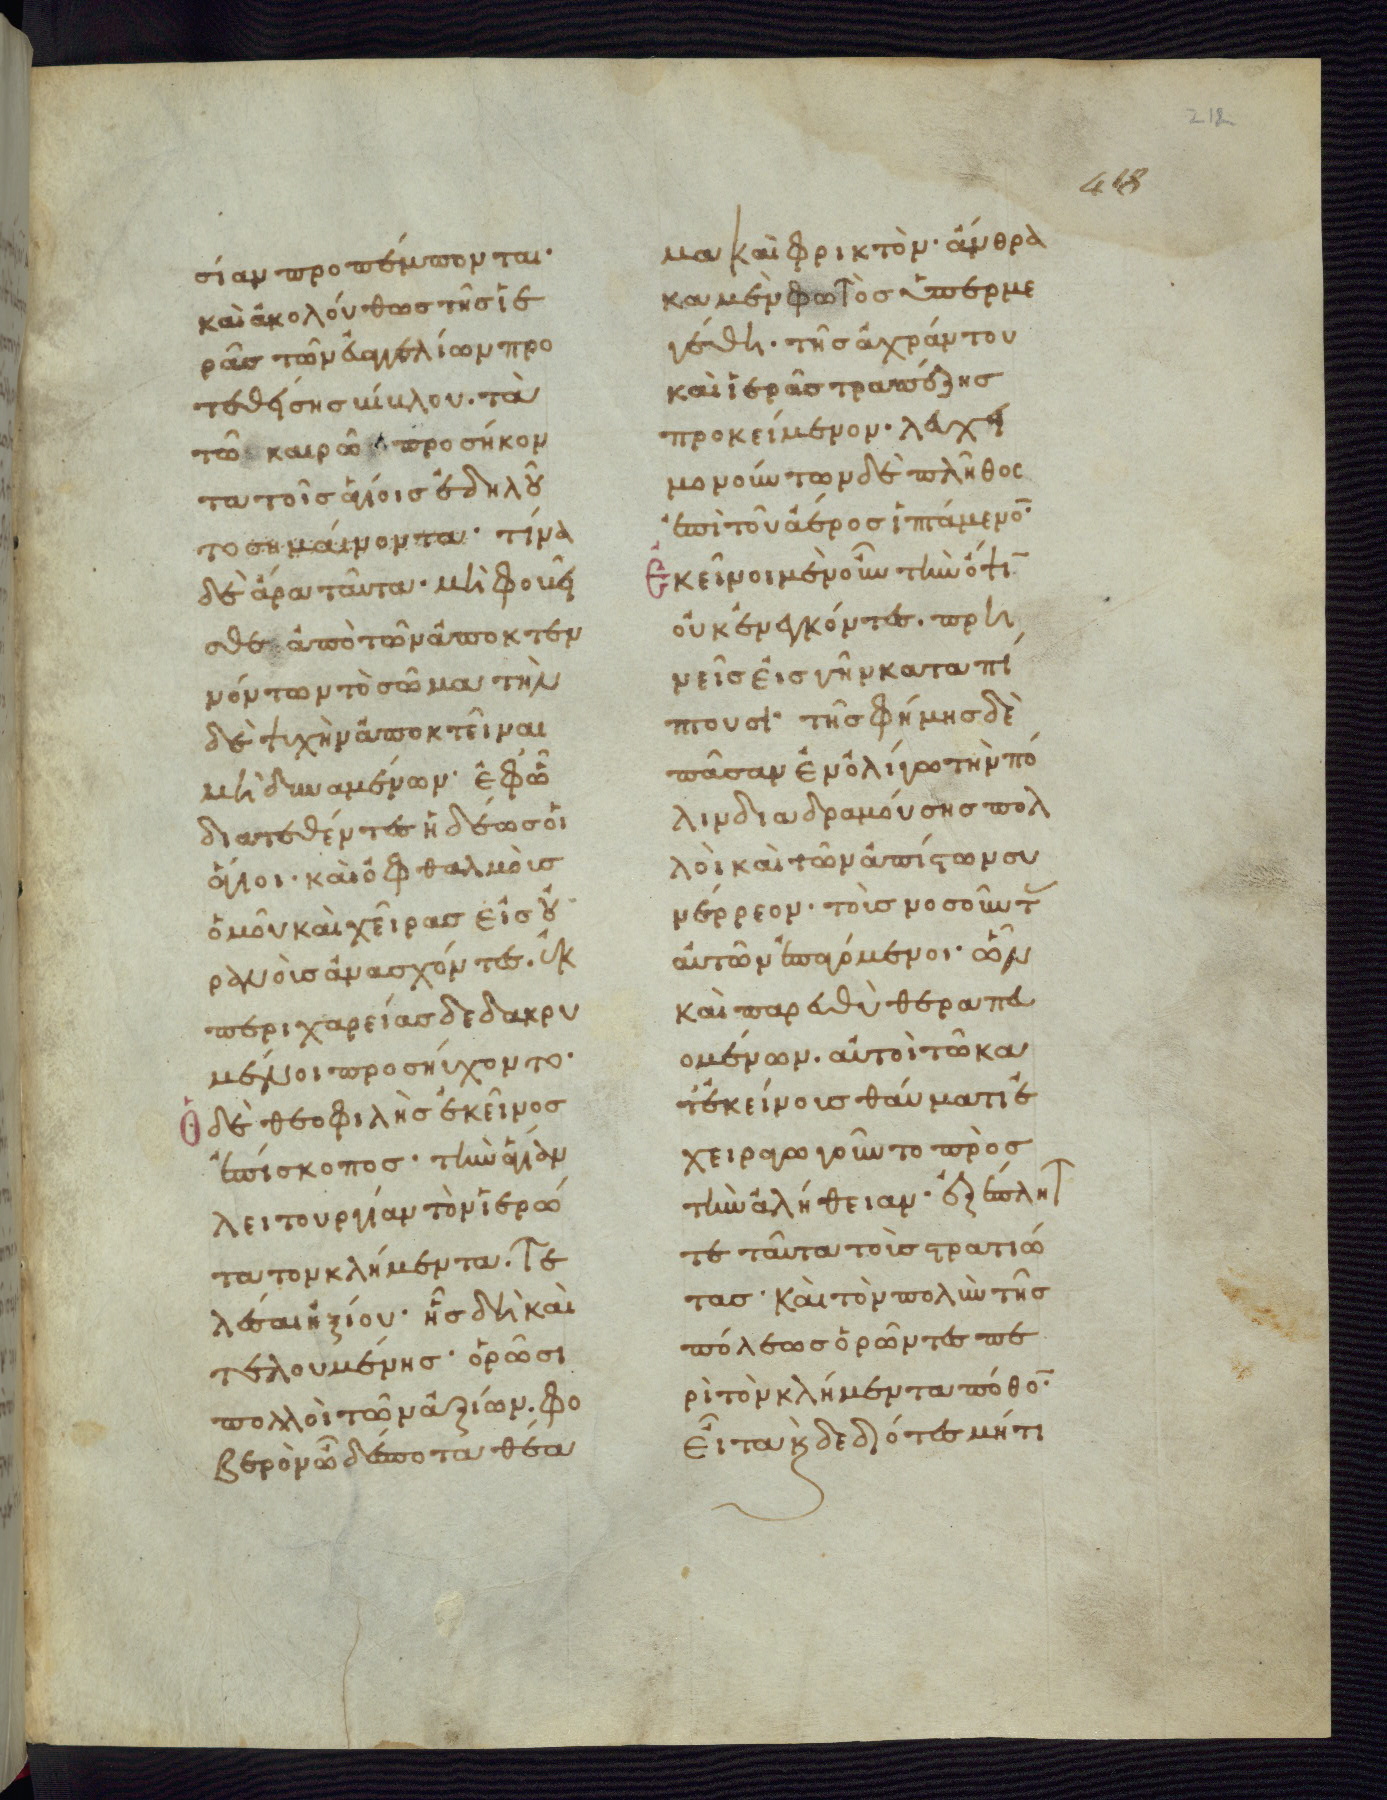 212
418
σίαν προπέμπονται·
καὶ ἀκολούθως τῆς ἱε
ρᾶς τῶν εὐαγγελίων προ
τεθείσης κύκλου· τὰ
τῶ καιρῶ προσήκον
τα τοῖς ἁγίοις ἐδηλοῦ
το σημαίνοντα· τίνα
δὲ ἄρα ταῦτα· μὴ φοβεῖ
σθε ἀπὸ τῶν ἀποκτεν
νόντων τὸ σῶμα τὴν
δὲ ψυχὴν ἀποκτεῖναι
μὴ δυναμένων· ἐφ ὧ
διατεθέντες ἡδέως οἱ
ἅγιοι· καὶ ὀφθαλμοὺς
ὁμοῦ καὶ χεῖρας εἰς οὐ
ρανοὺς ἀνασχόντες· ἐκ
περιχαρείας δεδακρυ
μένοι προσηύχοντο·
Ὁ δὲ θεοφιλὴς ἐκεῖνος
ἐπίσκοπος· τὴν ἁγίαν
λειτουργίαν τὸν ἱερώ
τατον κλήμεντα· τε
λέσαι ἠξίου· ἧς δὴ καὶ
τελουμένης· ὁρῶσι
πολλοὶ τῶν ἀξίων· φο
βερὸν ὧδέ ποτα θέα
μα καὶ φρικτὸν· ἄνθρα
κα μὲν φωτὸς ὑπερμε
γέθη· τῆς ἀχράντου
καὶ ἱερᾶς τραπέζης
προκείμενον· λευχει
μονούντων δὲ πλῆθος
ἐπὶ τοῦ ἀέρος ἱπτάμενον·
Ἐκεῖνοι μὲν οὖν τὴν ὄψιν
οὐκ ἐνεγκόντες· πρη
νεῖς εἰς γῆν καταπί
πτουσι· τῆς φήμης δὲ
πᾶσαν ἐν ὀλίγω τὴν πό
λιν διαδραμούσης πολ
λοὶ καὶ τῶν ἀπίστων συ
νέρρεον· τοὺς νοσοῦντας
αὐτῶν ἐπαγόμενοι· ὧν
καὶ παρευθὺ θεραπευ
ομένων· αὐτοὶ τῶ κα
τ ἐκείνοις θαύματι ἐ
χειραγωγοῦντο πρὸς
τὴν ἀλήθειαν· ἐξέπληττε
τε ταῦτα τοὺς στρατιώ
τας· Καὶ τὸν πολὺν τῆς
πόλεως ὁρῶντες πε
ρὶ τὸν κλήμεντα πόθον·
Εἶτα καὶ δεδιότες μήτι